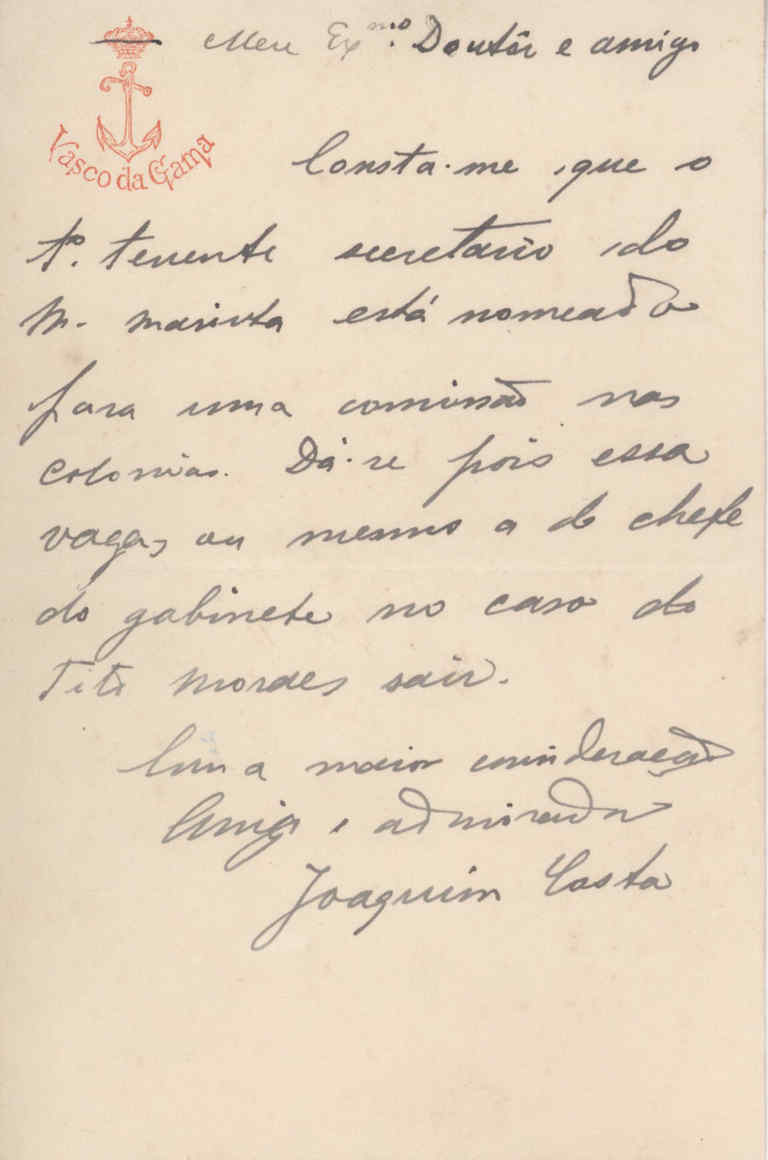 Meu Ex.mo Doutôr e amigo
Vasco da Gama
Consta-me que o
1º. tenente secretario do
M. marinha está nomeado
para uma comissão nas
colonias. Dá-se pois essa
vaga, ou mesmo a do chefe
do gabinete no caso do
Tito Moraes sair.
Com a maior consideração
Amigo e admirador
Joaquim Costa